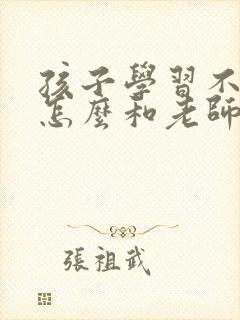 孩子學習不
怎麼和老師
張祖武